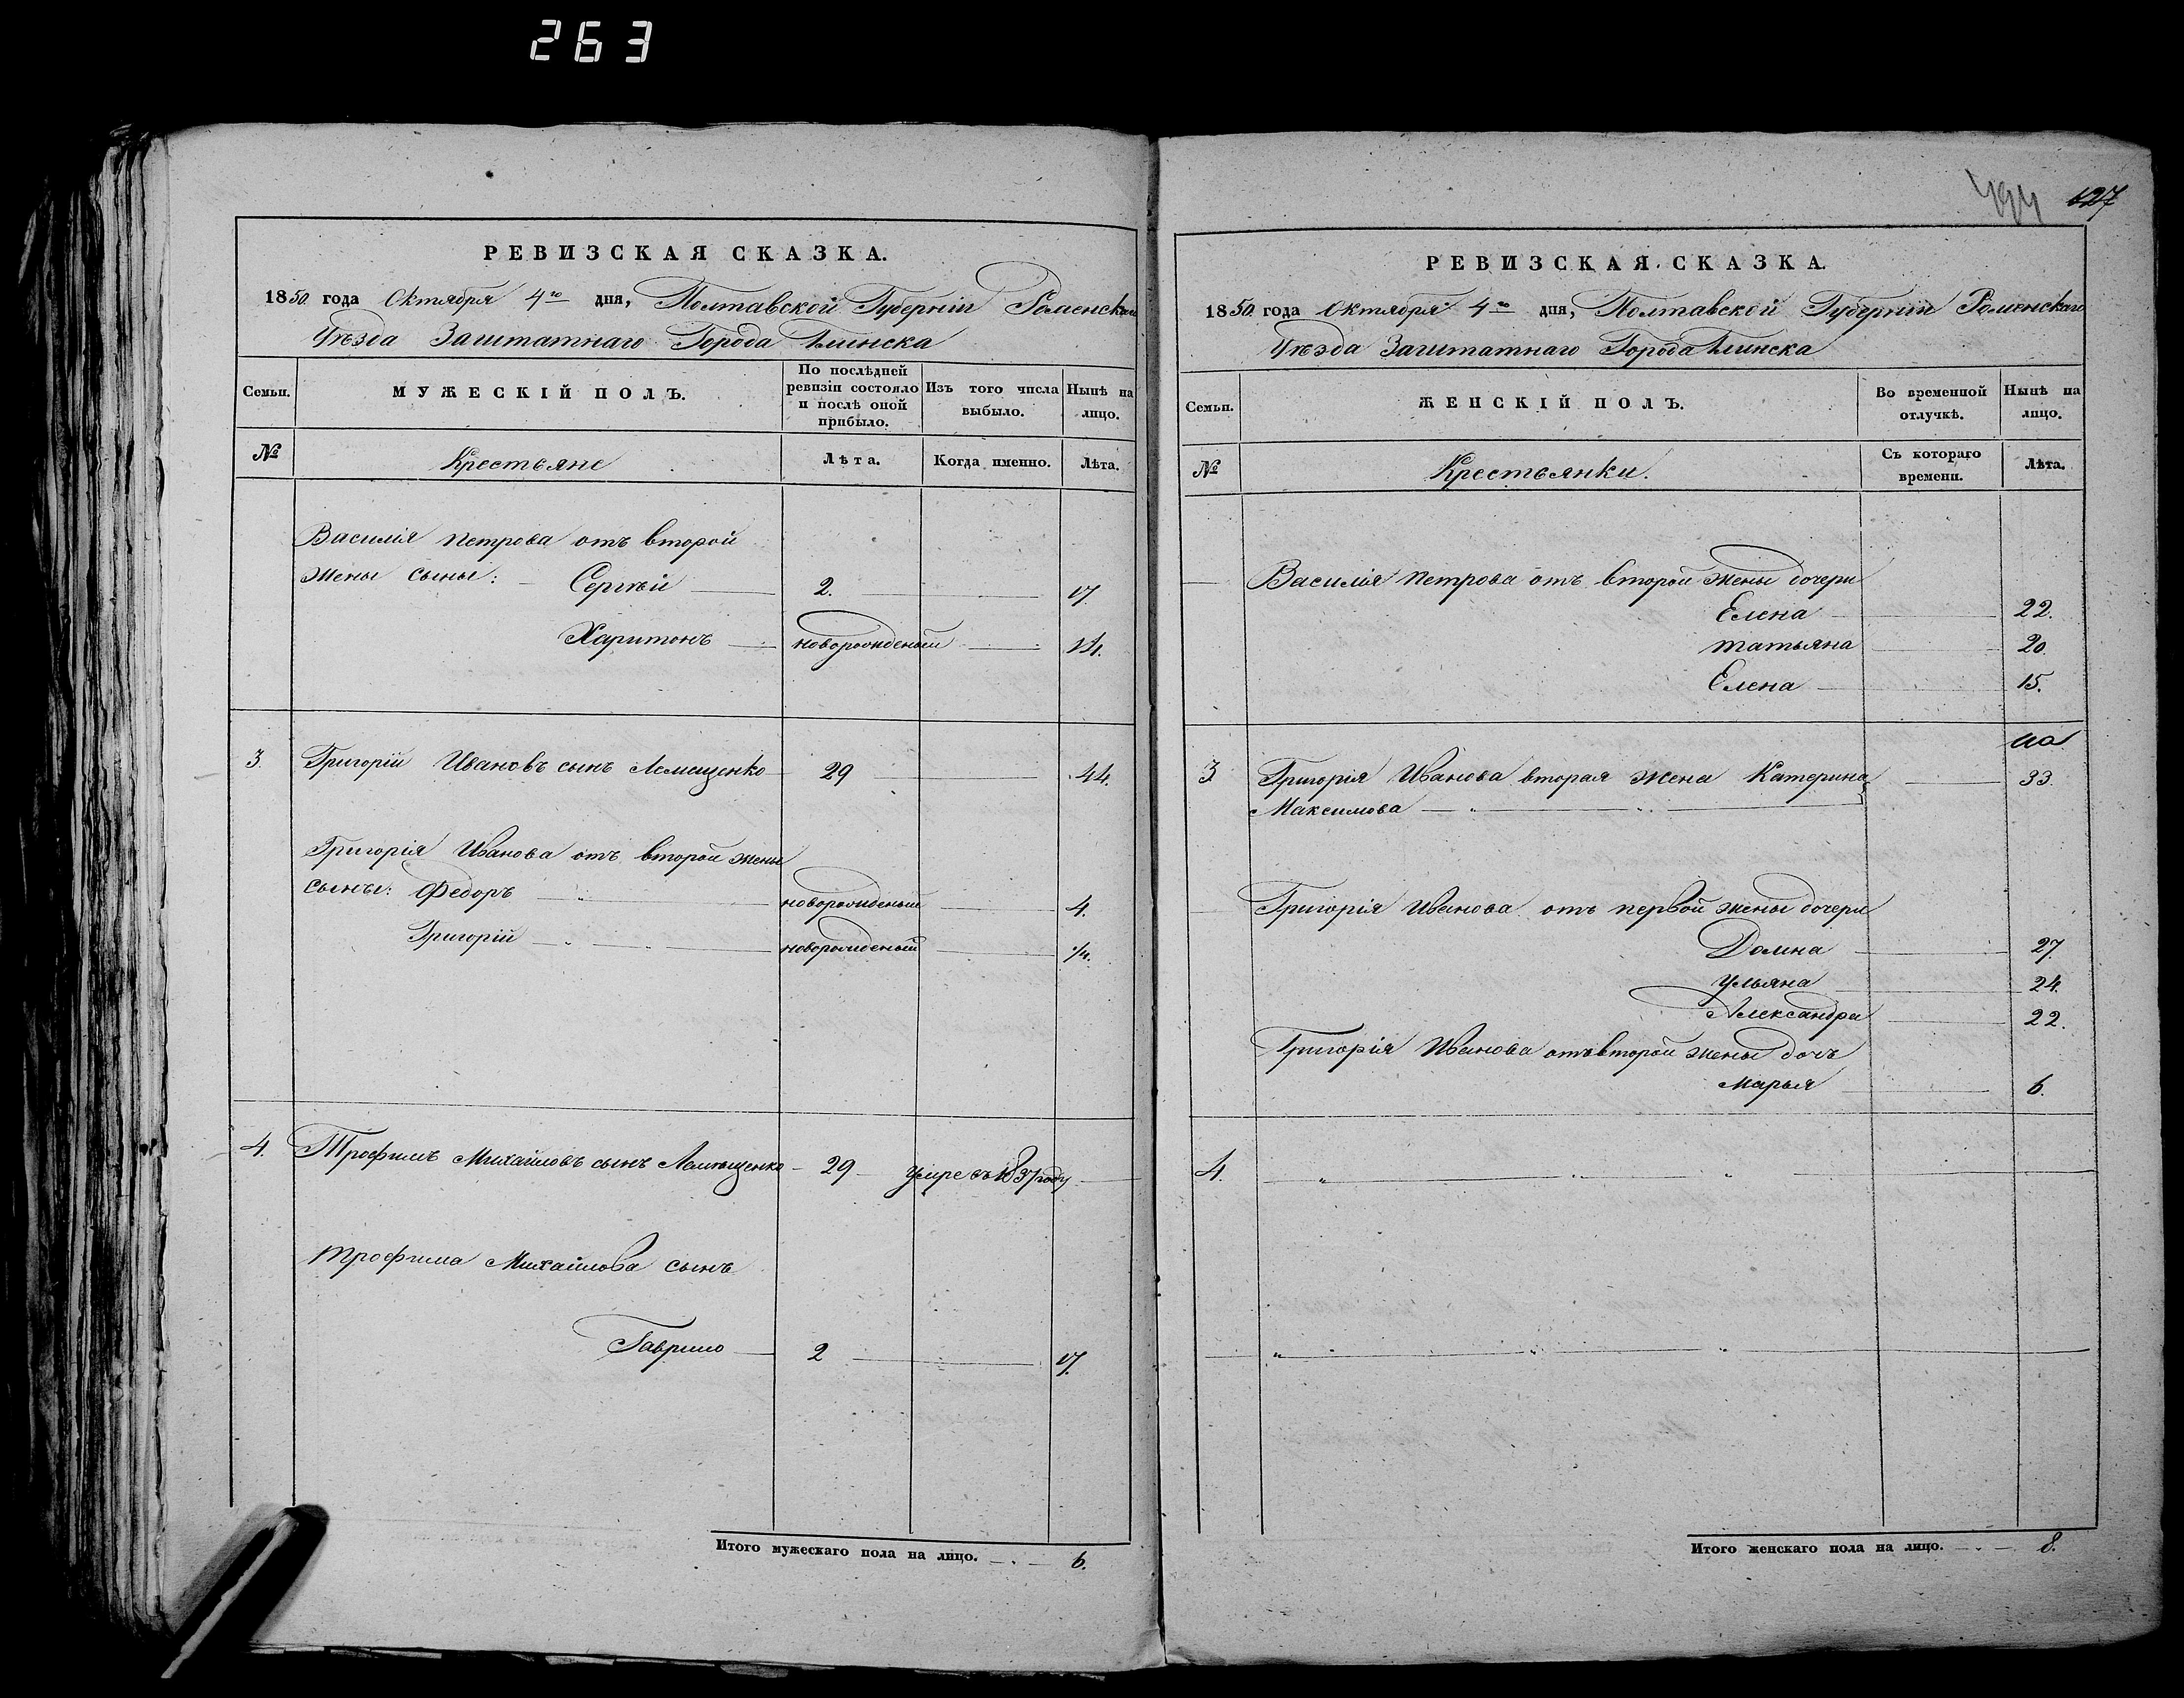 263
494 127
РЕВИЗСКАЯ СКАЗКА.
1850 года Октября 4го дня, Полтавской Губерніи Роменскаго
Уѣзда Заштатнаго Города Глинска
Семьи.
МУЖЕСКІЙ ПОЛЪ.
По послѣдней ревизіи состояло и послѣ оной прибыло.
Изъ того числа выбыло.
Нынѣ на лицо.
№
Крестьяне
Лѣта.
Когда именно.
Лѣта.
Василія Петрова отъ второй
жены сыны: Сергѣй 2. 17.
Харитонъ новорожденый 14.
3. Григорій Ивановъ сынъ Лемещенко 29 44.
Григорія Иванова отъ второй жены
сыны: Федоръ новорожденый 4.
Григорій новорожденый 1/4.
4. Трофимъ Михайловъ сынъ Лемещенко 29 умре въ 1837 году
Трофима Михайлова сынъ
Гаврило 2 17.
Итого мужескаго пола на лицо. 6.
РЕВИЗСКАЯ СКАЗКА.
1850 года Октября 4го дня, Полтавской Губерніи Роменскаго
Уѣзда Заштатнаго Города Глинска
Семьи.
ЖЕНСКІЙ ПОЛЪ.
Во временной отлучкѣ.
Нынѣ на лицо.
№
Крестьянки.
Съ котораго времени.
Лѣта.
Василія Петрова отъ второй жены дочери
Елена 22.
Татьяна 20.
Елена 15.
3. Григорія Иванова вторая жена Катерина 33.
Максимова
Григорія Иванова отъ первой жены дочери
Домна 27.
Ульяна 24.
Александра 22.
Григорія Иванова отъ второй жены дочь
Марья 6.
4.
Итого женскаго пола на лицо. 8.